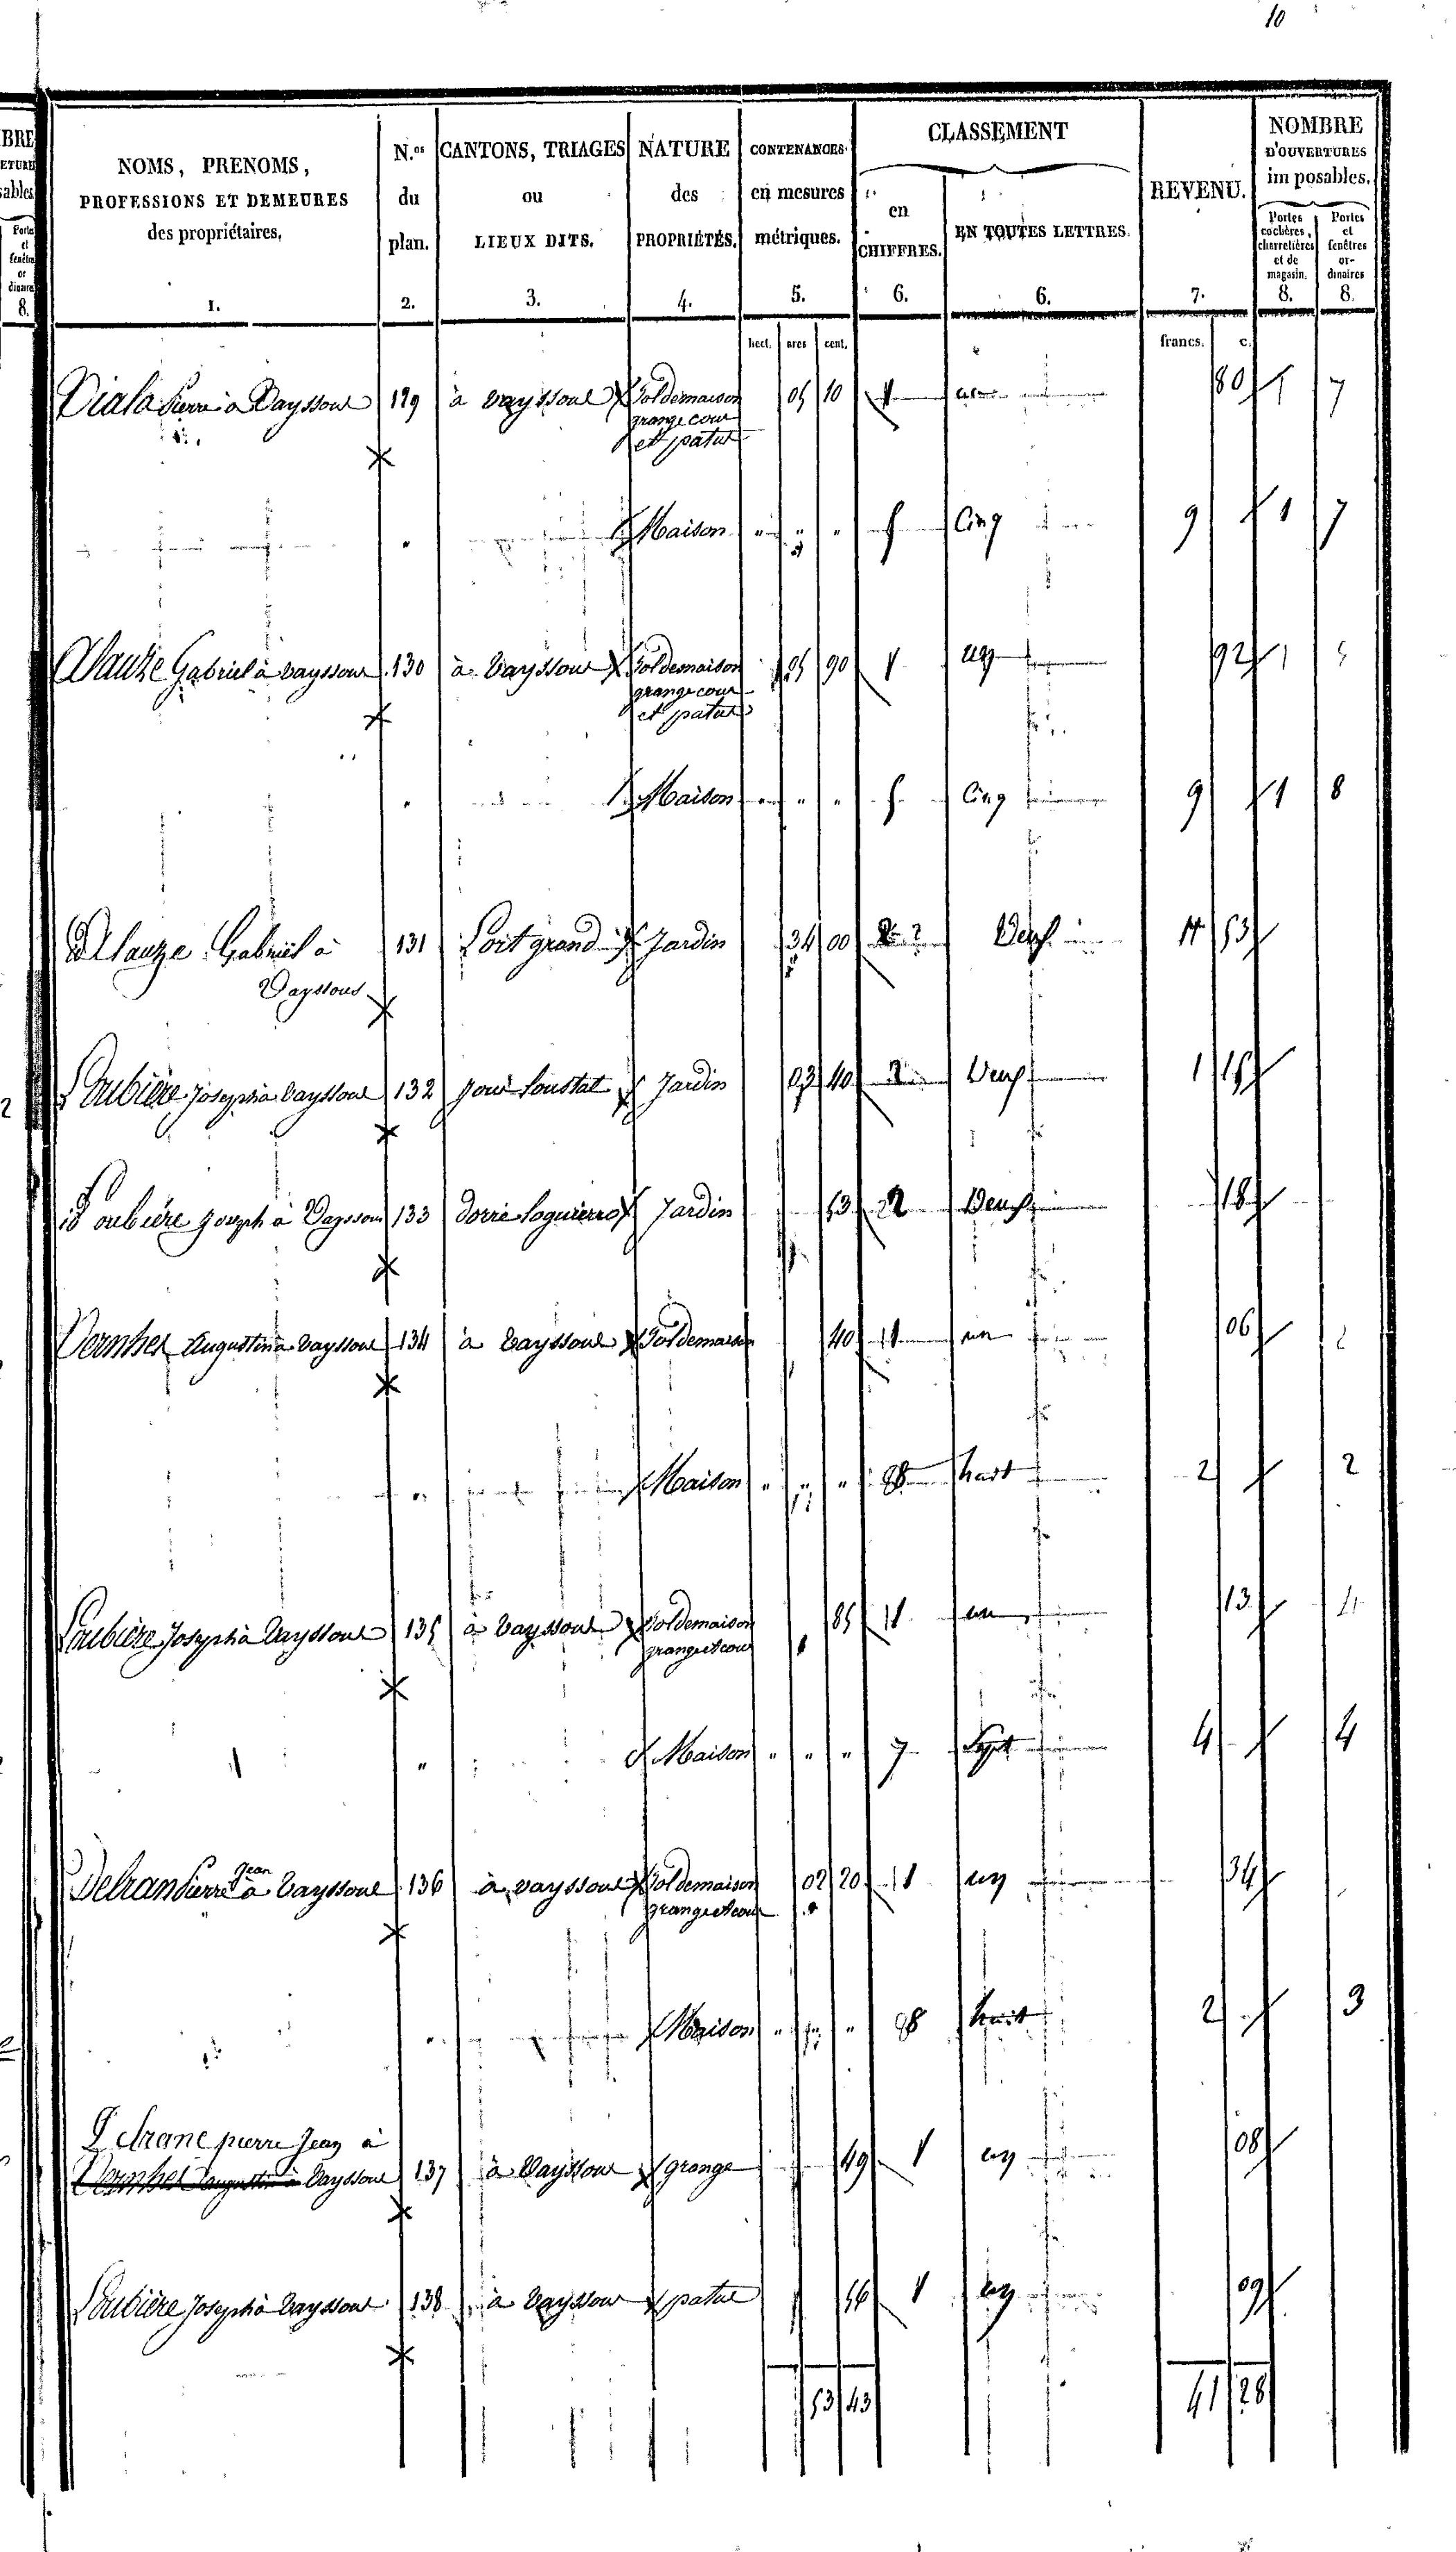 10
NOMS, PRENOMS, PROFESSIONS ET DEMEURES des propriétaires. 1.
N.os du plan. 2.
CANTONS, TRIAGES ou LIEUX DITS. 3.
NATURE des PROPRIÉTÉS. 4.
CONTENANCES en mesures métriques. 5.
CLASSEMENT
en CHIFFRES. 6.
EN TOUTES LETTRES. 6.
REVENU. 7.
NOMBRE D'OUVERTURES imposables.
Portes cochères, charretières et de magasin. 8.
Portes et fenêtres ordinaires 8.
hect. ares cent. francs. c.
Viala Pierre à Vayssous 129 à Vayssous Sol de maison 05 10 1 80 1 7
grange cour
et patus
" Maison " " " 5 Cinq 9 1 7
Alauze Gabriel à Vayssous 130 à Vayssous Sol de maison 05 90 1 un 92 1
grange cour
et patus
" Maison " " " 5 Cinq 9 1 8
Alauze Gabriel à 131 grand Jardin 34 00 2 Deux 11 53
Vayssous
Loubière Joseph à Vayssous 132 Loustal Jardin 03 40 2 Deux 1 15
Loubière Joseph à Vayssous 133 Jardin 53 2 Deux 18
Vernhes Augustin à Vayssous 134 à Vayssous Sol de maison 40 1 un 06
" Maison " " " 8 huit 2 2
Loubière Joseph à Vayssous 135 à Vayssous Sol de maison 85 1 un 13
grange et cour
" Maison " " " 7 Sept 4 4
Jean
Delran Pierre à Vayssous 136 à Vayssous Sol de maison 02 20 1 un 34
grange et cour
" Maison " " " 8 huit 2 3
Delrane pierre Jean à
Vernhes Augustin à Vayssous 137 à Vayssous grange 49 1 un 08
Loubière Joseph à Vayssous 138 à Vayssous patus 56 1 un 09
53 43 41 28